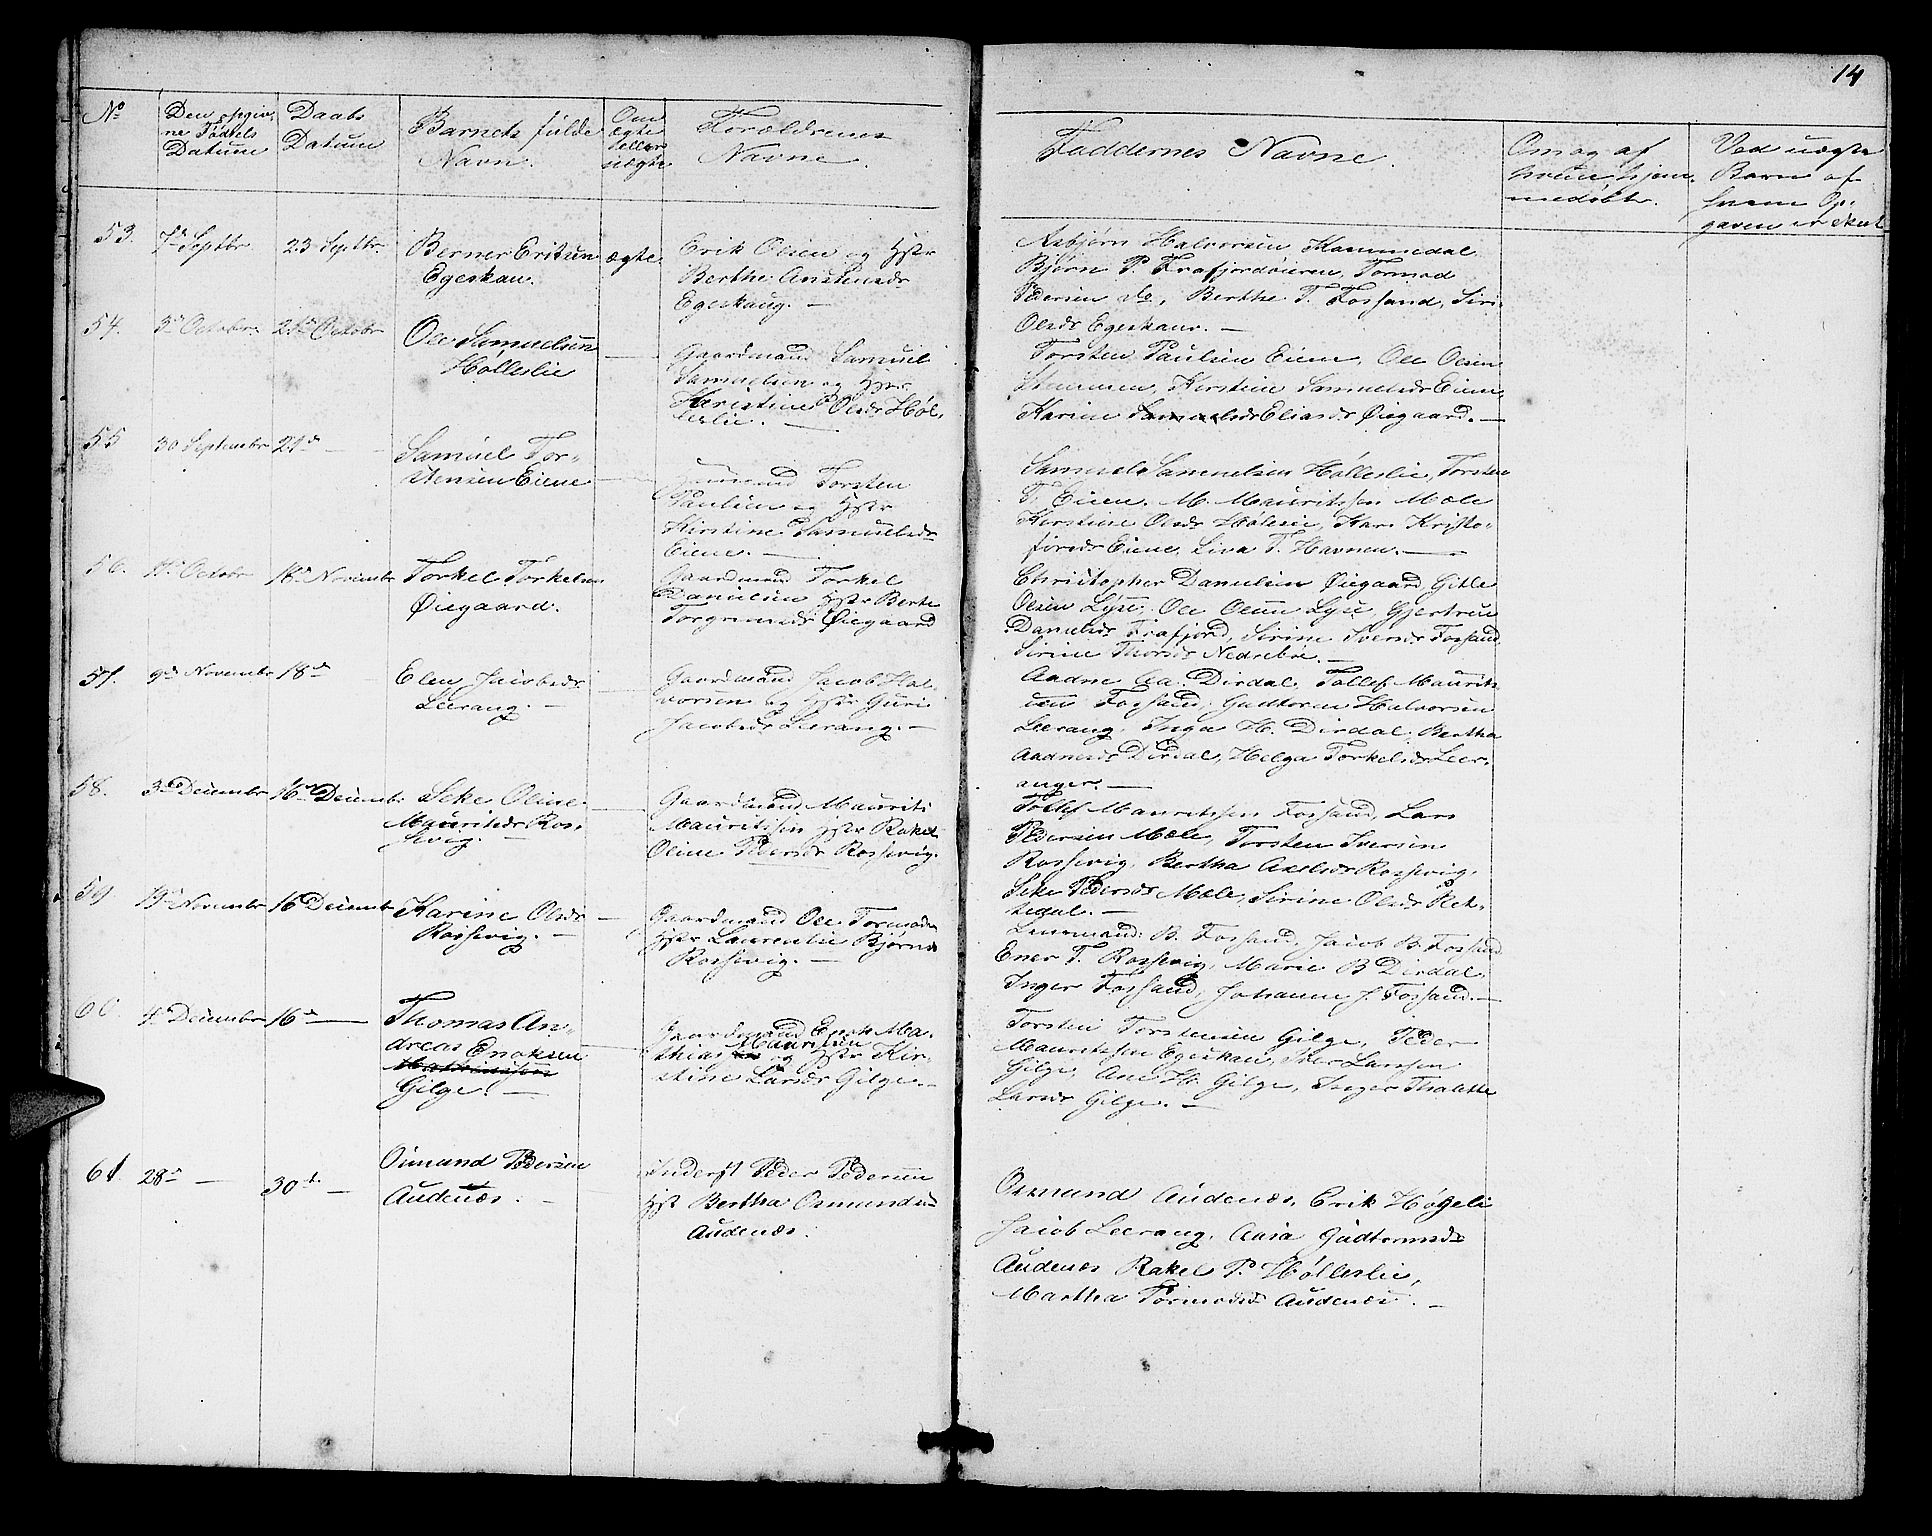 14
No
Den opgiv-
ne Fødsels
Datum
Daabs
Datum
Barnets fulde
Navn.
Om
ægte
eller
uægte
Forældrenes
Navne.
Faddernes Navne.
Om og af
hvem hjem-
medøbt.
Ved uægte
Barn af
hvem Op-
gaven er skeet
53. 7de Septbr. 23 Septbr.
Berner Eriksen
Egeskau.
ægte.
Erik Olsen og Hstr
Berthe Anstensdr
Egeskaug. —
Asbjørn Halvorsen
Bjørn P. Frafjordøieren, Tormod
Pedersen do, Berthe T. Fossand, Siri
Olsdr Egeskau. —
54. 3de Octobr. 21de Octobr
Ole Samuelsen
Hølleslie
—
Gaardmand Samuel
Samuelsen og Hstr
Kerstine Olsdr Høl-
leslie. —
Torsten Paulsen Eiene, Ole Olsen
Kirstine Samuelsdr Eiene
Karine Samuelsdr Eliasdr Øiegaard. —
55 30 Septembr 21de —
Samuel Tor-
stensen Eiene
—
Torsten
Paulsen og Hstr
Kirstine Samuelsdr
Eiene. —
Samuel Samuelsen Hølleslie, Torsten
T. Eiene. M. Mauritssen Mæle
Kirstine Olsdr Høleslie, Kari Kristo-
fersdr Eiene, Liva T. Havnen. —
56. Octobr 18de Novembr
Torkel Torkelsen
Øiegaard.
Gaardmand Torkel
Danielsen Hstr Berte
Torgrimsdr Øiegaard
Christopher Danielsen Øiegaard, Gitle
Olsen Lyse, Ole Olsen Lyse, Gjertrue
Danielsdr Frafjord, Sirine Iversdr Fossand
Sirine Thorsdr Nedrebøe. —
57. 9de Novembr 18de —
Elen Jacobsdr
Leerang. —
—
Gaardmand Jacob Hal-
vorsen og Hstr Guri
Jacobsdr Leerang. —
Aadne Aa. Dirdal, Tollef Maurits-
sen Fossand, Gudtorm Halvorsen
Leerang, Inga H. Dirdal, Bertha
Aadnesdr Dirdal, Helga Torkelsdr Leer-
anger. —
58. 3de Decembr 16de Decembr
Seke Oline
Mauritsdr Ros-
sevig. —
—
Gaardmand Maurits
Mauritssen Hstr Rakel
Oline Pedersdr Rossevig.
Tollef Mauritssen Fossand, Lars
Pedersen Mæle, Torsten Iversen
Rossevig, Bertha Axelsdr Rossevig,
Seke Pedersdr Mæle, Sirine Olsdr Rek-
kedal. —
59 19de Novembr 16 Decembr
Karine Olsdr
Rossevig. —
—
Gaardmand Ole Tormodsen
Hstr Laurentse Bjørnsdr
Rossevig. —
Lensmand B. Fossand, Jacob B. Fossand
Ener T. Rossevig, Marie B Dirdal,
Inger Fossand, Johanne J. Fossand. —
60. 4de Decembr 16de —
Thomas An-
dreas Enoksen
Gilge. —
—
Gaardmand Enok Ma-
thias Mauritsen og Hstr Kir-
stine Larsdr Gilge. —
Torsten Torstensen Gilge, Peder
Mauritssen Egeskau, Peder Larssen
Gilge, Ane H. Gilge, Inger Thalette
Larsdr Gilge. —
61. 28de — 30te —
Osmund Pedersen
Audenæs. —
Inderst Peder Pedersen
Hst Bertha Osmundsdr
Audenæs.
Osmund Audenæs, Erik Høgeli
Jacob Leerang, Aasa Gudtormsdr
Audenæs Rakel P. Hølleslie,
Martha Tormodsdr Audenæs. —